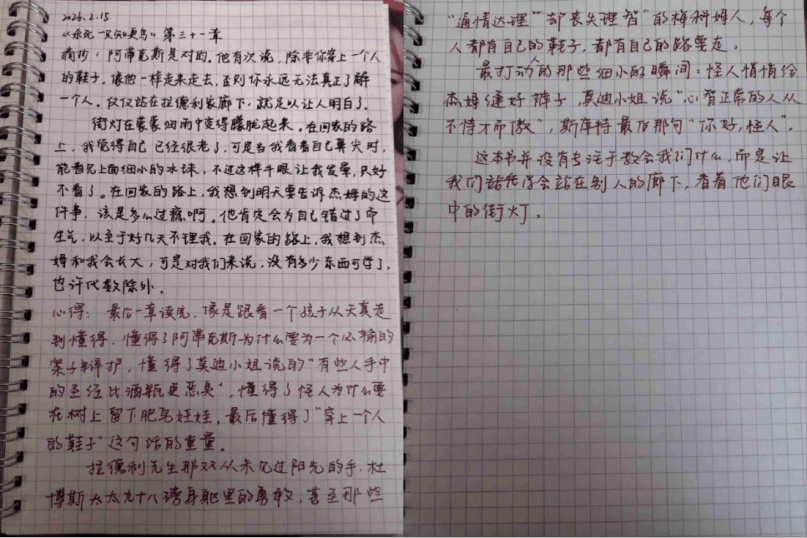 2026.2.15
《杀死一只知更鸟》第三十一章
摘抄：阿蒂克斯是对的。他有次说，除非你穿上一个人
的鞋子，像他一样走来走去，否则你永远无法真正了解
一个人。仅仅站在拉德利家廊下，就足以让人明白了。
街灯在蒙蒙细雨中变得朦胧起来。在回家的路
上，我觉得自己已经很老了，可是当我看看自己鼻尖时，
能看见上面细小的水珠，不过这样斗眼让我发晕，只好
不看了。在回家的路上，我想到明天要告诉杰姆的这
件事，该是多么过瘾啊。他肯定会为自己错过了而
生气，以至于好几天不理我。在回家的路上，我想到杰
姆和我会长大，可是对我们来说，没有多少东西可学了，
也许代数除外。
心得：最后一章读完，像是跟着一个孩子从天真走
到懂得，懂得了阿蒂克斯为什么要为一个必输的
案子辩护，懂得了莫迪小姐说的“有些人手中
的圣经比酒瓶更恶臭”，懂得了怪人为什么要
在树上留下肥皂娃娃，最后懂得了“穿上一个人
的鞋子”这句话的重量。
拉德利先生那双从未见过阳光的手，杜
博斯太太九十八磅身躯里的勇敢，甚至那些
“通情达理”却丧失理智”的梅科姆人，每个
人都有自己的鞋子，都有自己的路要走。
最打动人的那些细小的瞬间：怪人悄悄给
杰姆缝好裤子，莫迪小姐说“心智正常的人从
不恃才而傲”，斯库特最后那句“你好，怪人”。
这本书并没有专注于教会我们什么，而是让
我们站在别人的廊下，看着他们眼
中的街灯。